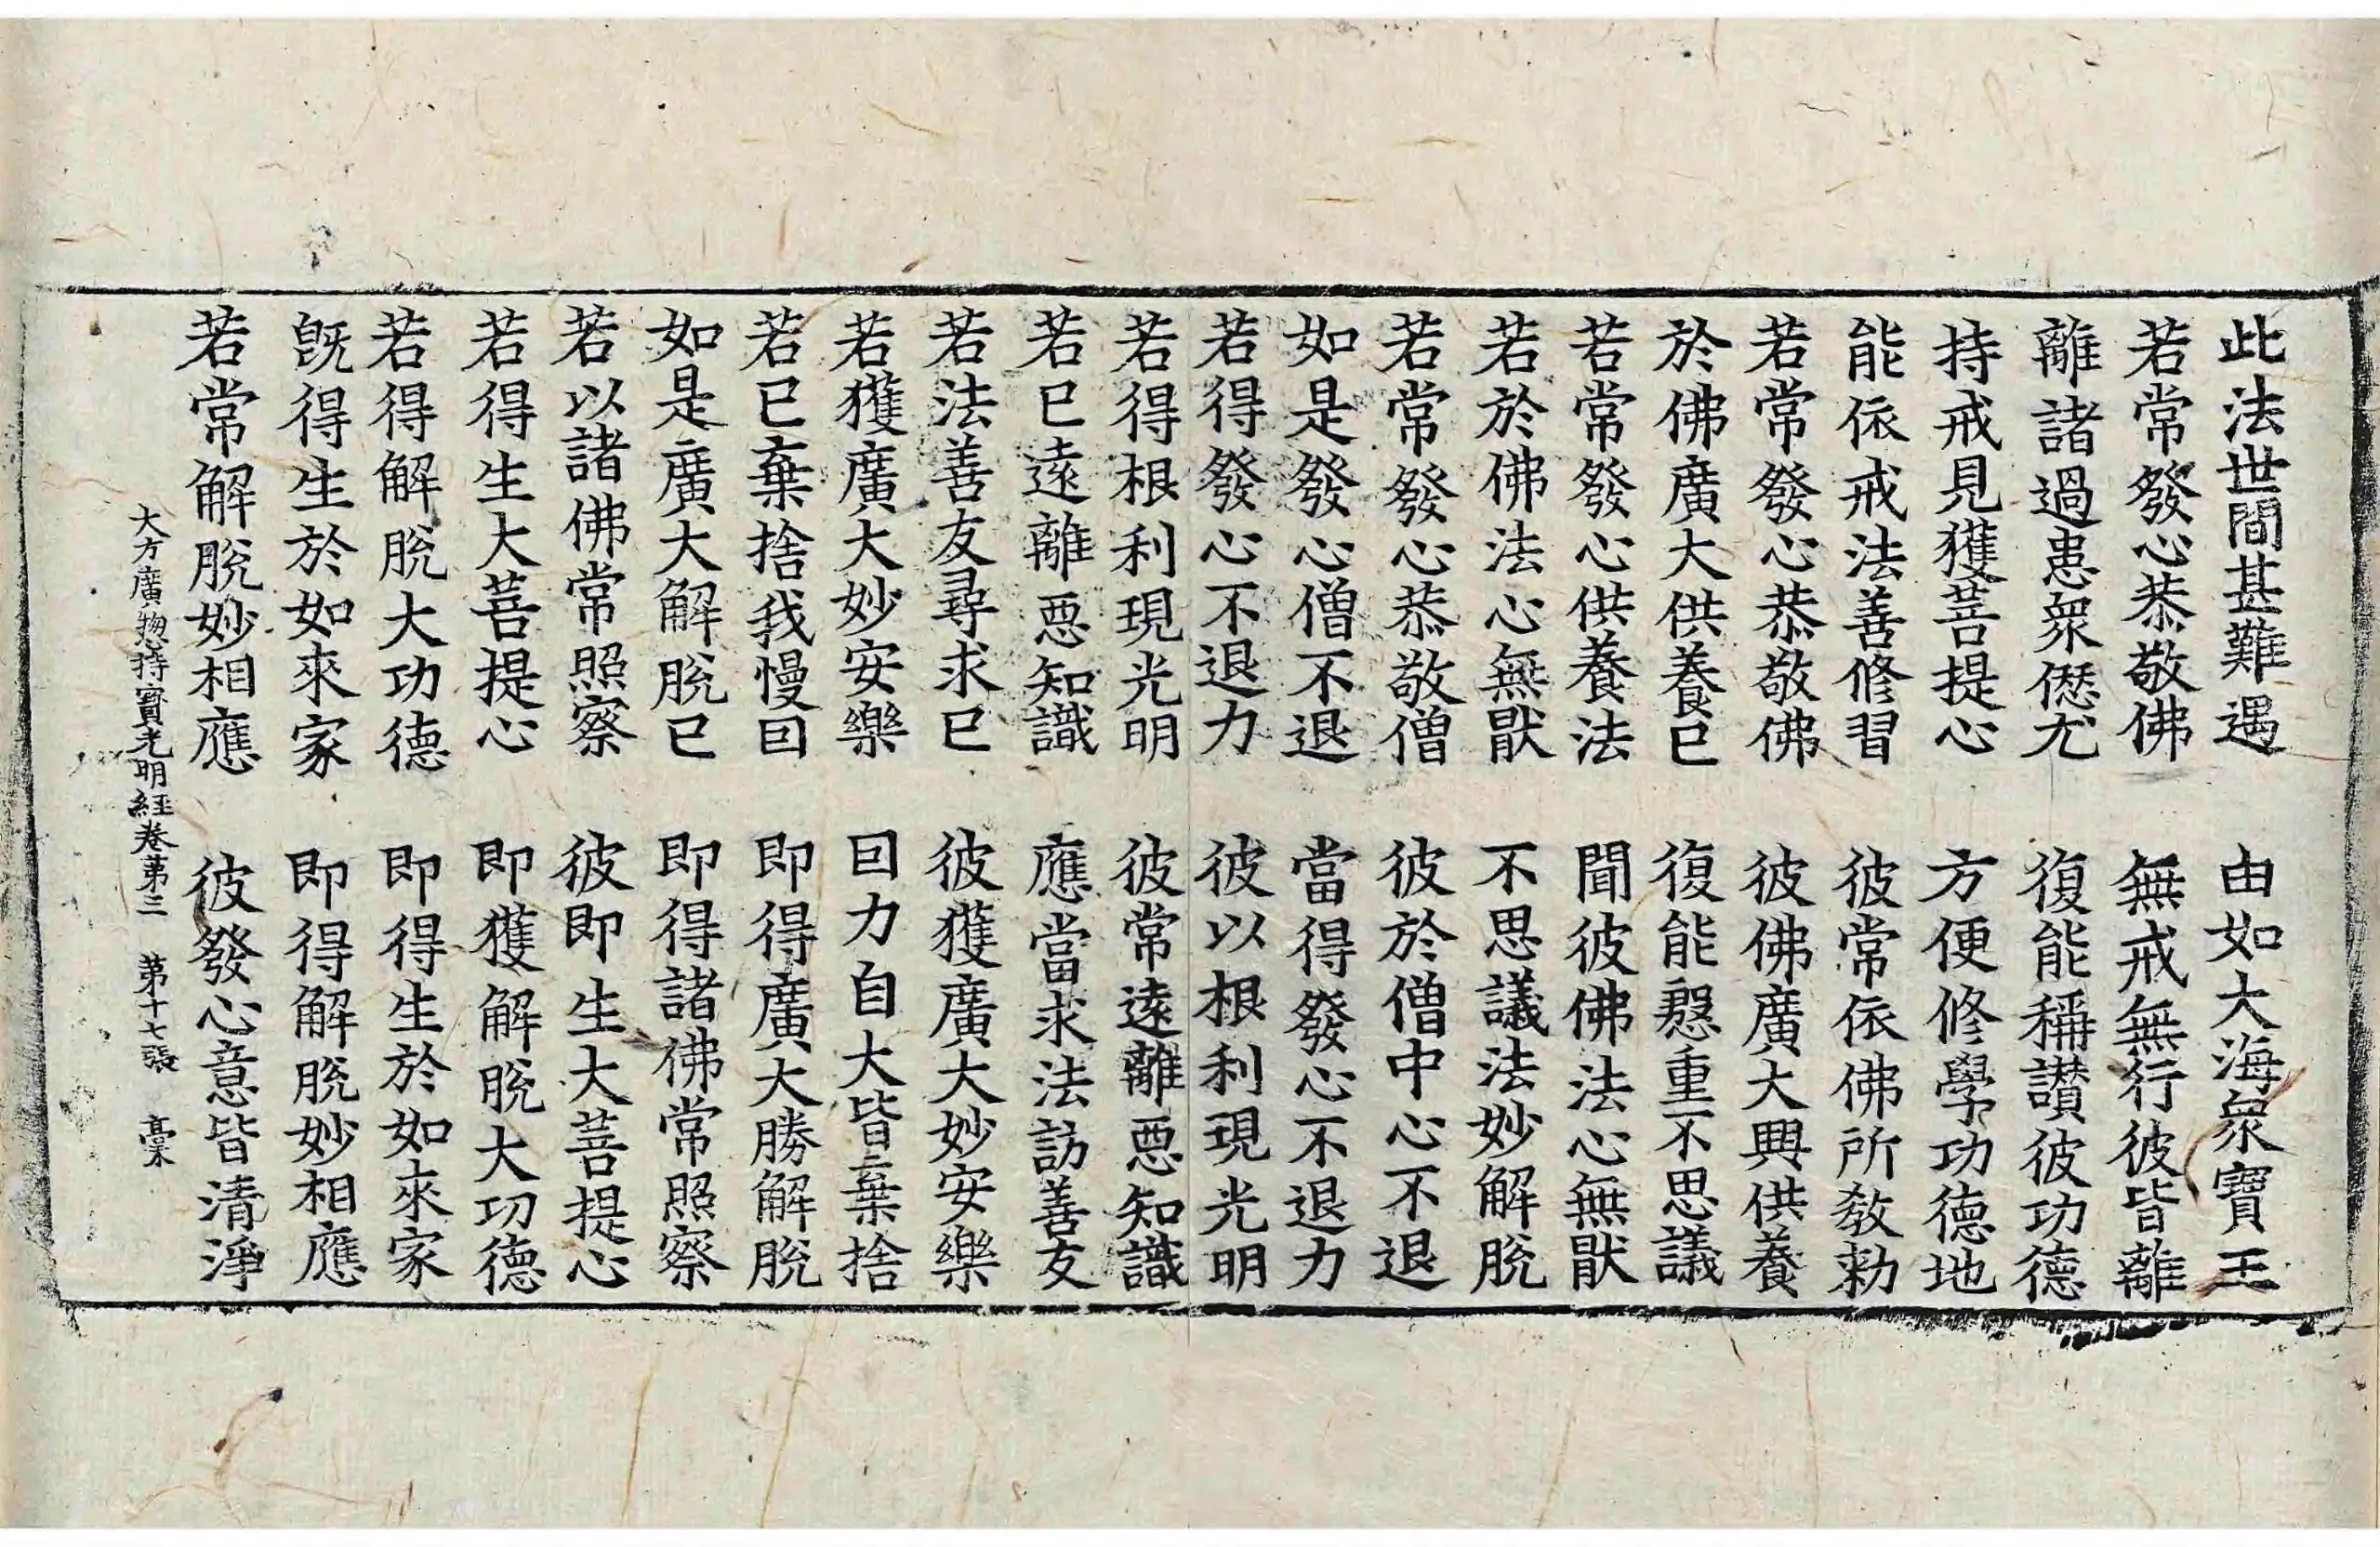 此法世間甚難遇　由如大海衆寶王
若常發心恭敬佛　無戒無行彼皆離
離諸過患衆愆尤　復能稱讃彼功德
持戒見獲菩提心　方便修學功德地
能依戒法善修習　彼常依佛所教勑
若常發心恭敬佛　彼佛廣大興供養
於佛廣大供養已　復能慇重不思議
若常發心供養法　聞彼佛法心無猒
若於佛法心無猒　不思議法妙解脫
若常發心恭敬僧　彼於僧中心不退
如是發心僧不退　當得發心不退力
若得發心不退力　彼以根利現光明
若得根利現光明　彼常遠離惡知識
若已遠離惡知識　應當求法訪善友
若法善友尋求已　彼獲廣大妙安樂
若獲廣大妙安樂　囙力自大皆棄捨
若已棄捨我慢囙　即得廣大勝解脫
如是廣大解脫已　即得諸佛常照察
若以諸佛常照察　彼即生大菩提心
若得生大菩提心　即獲解脫大功德
若得解脫大功德　即得生於如來家
旣得生於如來家　即得解脫妙相應
若常解脫妙相應　彼發心意皆清淨
大方廣惣持寶光明經卷第三　第十七張　槀